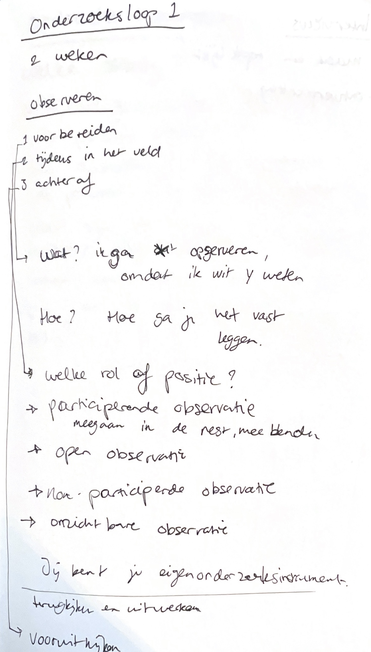 Onderzoeksloop 1
2 weken
observeren
1 voorbereiden
2 tijdens in het veld
3 achteraf
Wat? ik ga opserveren,
omdat ik wit y weten
Hoe? Hoe ga je het vast
leggen.
welke rol of positie?
→ participerende observatie
meegaan in de rest, mee
→ open observatie
→ non-participerde observatie
→ onzichtbare observatie
Jij bent je eigen onderzoeksinstrument.
terugkijken en uitwerken
vooruitkijken